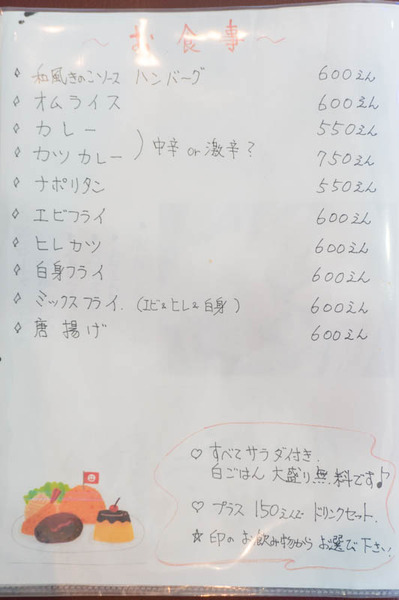 ～お食事～
◇ 和風きのこソース ハンバーグ 600えん
◇ オムライス 600えん
◇ カレー 550えん
) 中辛 or 激辛?
◇ カツカレー 750えん
◇ ナポリタン 550えん
◇ エビフライ 600えん
◇ ヒレカツ 600えん
◇ 白身フライ 600えん
◇ ミックスフライ. (エビ&ヒレ&白身) 600えん
◇ 唐揚げ 600えん
♡ すべてサラダ付き.
白ごはん 大盛り無料です♪
♡ プラス 150えんで ドリンクセット.
☆ 印の お飲み物から お選び下さい!